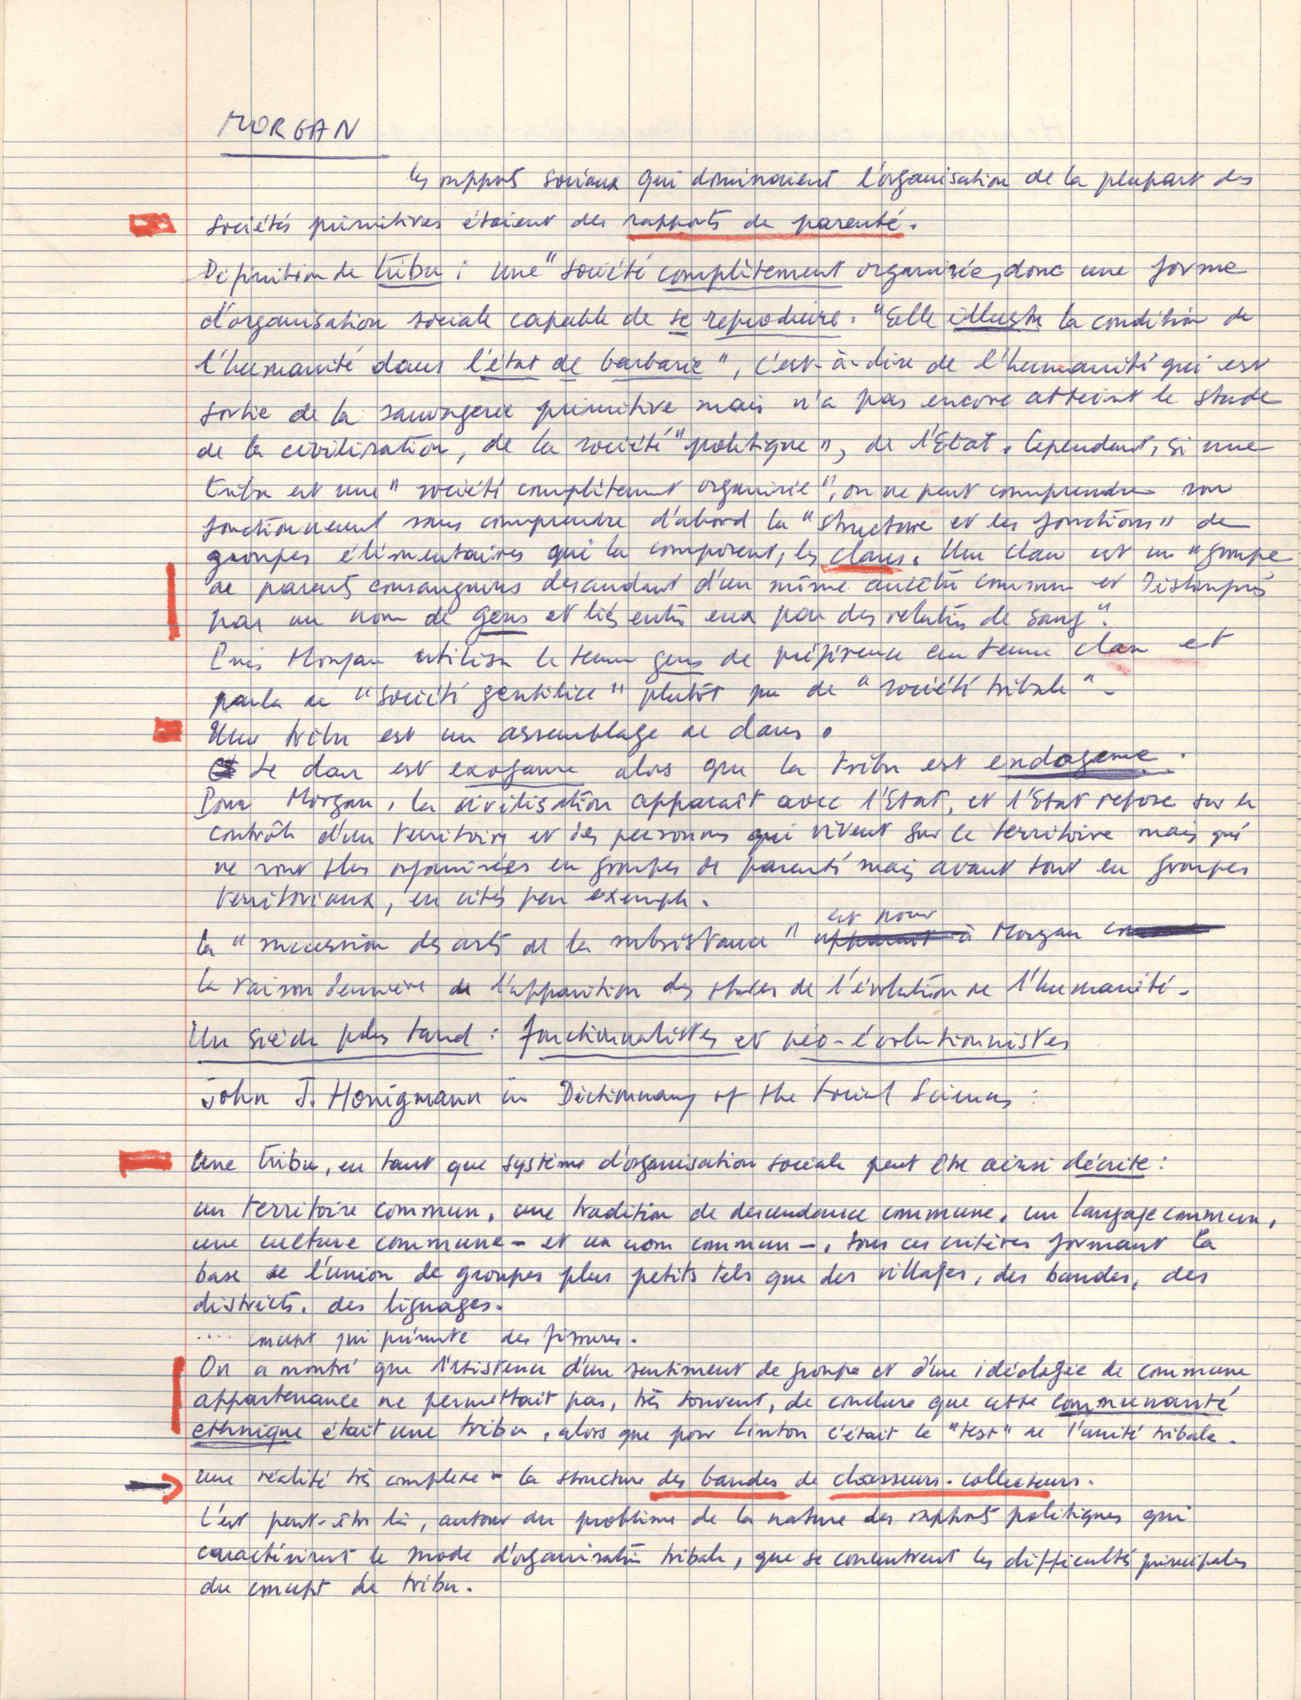 MORGAN
les rapports sociaux qui dominaient l'organisation de la plupart des
sociétés primitives étaient des rapports de parenté.
Définition de tribu : une "société complètement organisée, donc une forme
d'organisation sociale capable de se reproduire. "Elle illustre la condition de
l'humanité dans l'état de barbarie", c'est-à-dire de l'humanité qui est
sortie de la sauvagerie primitive mais n'a pas encore atteint le stade
de la civilisation, de la société "politique", de l'Etat. Cependant, si une
tribu est une "société complètement organisée", on ne peut comprendre son
fonctionnement sans comprendre d'abord la "structure et les fonctions" de
groupes élémentaires qui la composent, les clans. Un clan est un "groupe
de parents consanguins descendant d'un même ancêtre commun et distingués
par un nom de gens et liés entre eux par des relations de sang".
Puis Morgan utilisa le terme gens de préférence au terme clan et
parla de "société gentilice" plutôt que de "société tribale".
Une tribu est un assemblage de clans.
Le clan est exogame alors que la tribu est endogame.
Pour Morgan, la civilisation apparaît avec l'Etat, et l'Etat repose sur le
contrôle d'un territoire et des personnes qui vivent sur ce territoire mais qui
ne sont plus organisées en groupes de parenté mais avant tout en groupes
territoriaux, en cités par exemple.
la "succession des arts de la subsistance" est pour apparaît à Morgan
la raison dernière de l'apparition des stades de l'évolution de l'humanité.
Un siècle plus tard : fonctionnalistes et néo-évolutionnistes
John J. Honigmann in Dictionnary of the Social Sciences :
Une tribu, en tant que système d'organisation sociale peut être ainsi décrite :
un territoire commun, une tradition de descendance commune, un langage commun,
une culture commune - et un nom commun -, tous ces critères formant la
base de l'union de groupes plus petits tels que des villages, des bandes, des
districts, des lignages.
.... ciment qui présente des fissures.
On a montré que l'existence d'un sentiment de groupe et d'une idéologie de commune
appartenance ne permettait pas, très souvent, de conclure que cette communauté
ethnique était une tribu, alors que pour Linton c'était le "test" de l'unité tribale.
une réalité très complexe - la structure des bandes de chasseurs-collecteurs.
C'est peut-être là, autour du problème de la nature des rapports politiques qui
caractérisent le mode d'organisation tribale, que se concentrent les difficultés principales
du concept de tribu.